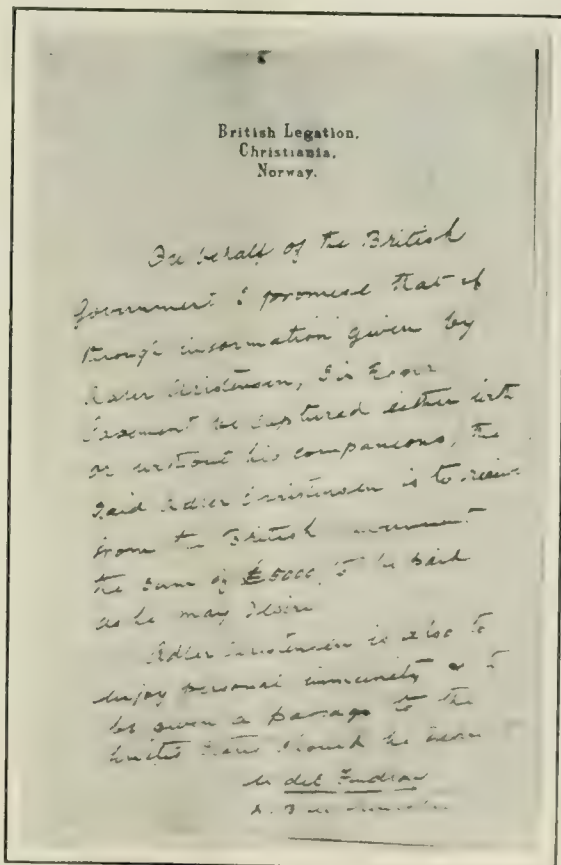 British Legation,
Christiania,
Norway.
On behalf of the British
Government I promise that if
through information given by
Adler Christensen, Sir Roger
Casement be captured either with
or without his companions, the
said Adler Christensen is to receive
from the British Government
the sum of £5000 to be paid
as he may desire
Adler Christensen is also to
enjoy personal immunity & to
be given a passage to the
United States should he desire
M de C Findlay